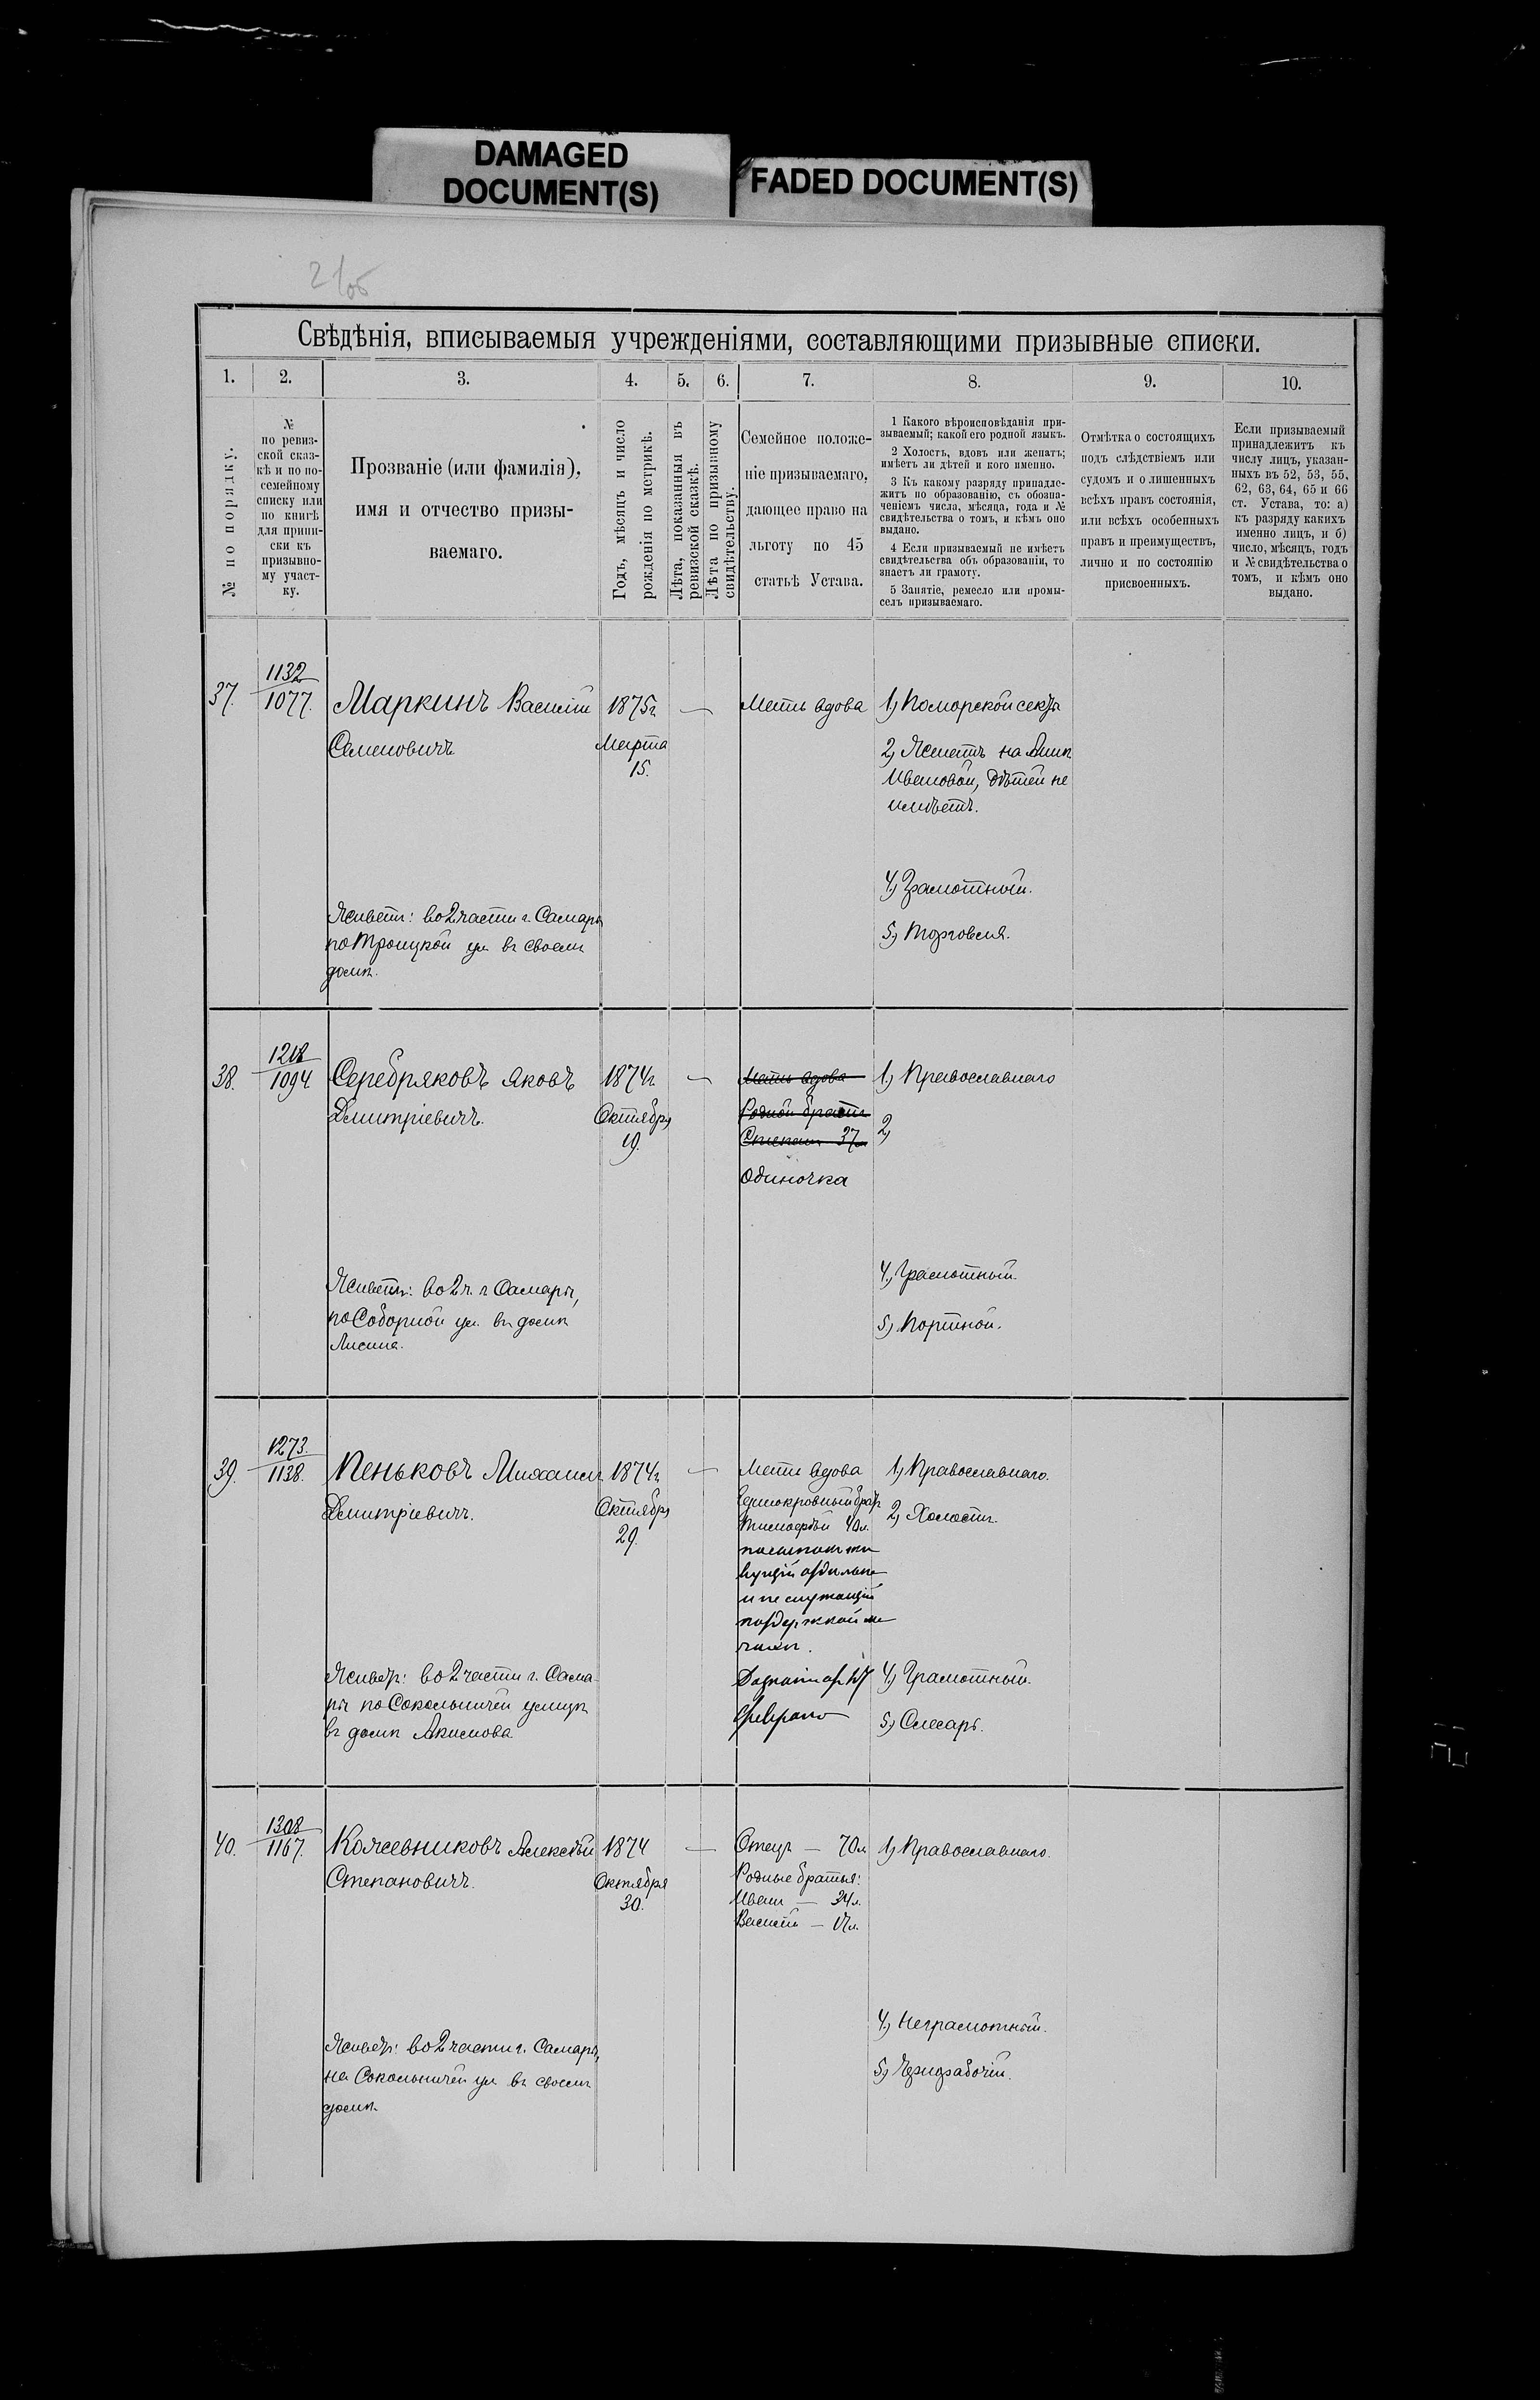 DAMAGED
DOCUMENT(S)
FADED DOCUMENT(S)
2/об
Свѣдѣнія, вписываемыя учрежденіями, составляющими призывные списки.
1.
2.
3.
4.
5.
6.
7.
8.
9.
10.
№ по порядку.
№
по ревиз-
ской сказ-
кѣ и по по-
семейному
списку или
по книгѣ
для припи-
ски къ
призывно-
му участ-
ку.
Прозваніе (или фамилія),
имя и отчество призы-
ваемаго.
Годъ, мѣсяцъ и число
рожденія по метрикѣ.
Лѣта, показанныя въ
ревизской сказкѣ.
Лѣта по призывному
свидѣтельству.
Семейное положе-
ніе призываемаго,
дающее право на
льготу по 45
статьѣ Устава.
1 Какого вѣроисповѣданія при-
зываемый; какой его родной языкъ.
2 Холостъ, вдовъ или женатъ;
имѣетъ ли дѣтей и кого именно.
3 Къ какому разряду принадле-
житъ по образованію, съ обозна-
ченіемъ числа, мѣсяца, года и №
свидѣтельства о томъ, и кѣмъ оно
выдано.
4 Если призываемый не имѣетъ
свидѣтельства объ образованіи, то
знаетъ ли грамоту.
5 Занятіе, ремесло или промы-
селъ призываемаго.
Отмѣтка о состоящихъ
подъ слѣдствіемъ или
судомъ и о лишенныхъ
всѣхъ правъ состоянія,
или всѣхъ особенныхъ
правъ и преимуществъ,
лично и по состоянію
присвоенныхъ.
Если призываемый
принадлежитъ къ
числу лицъ, указан-
ныхъ въ 52, 53, 55,
62, 63, 64, 65 и 66
ст. Устава, то: а)
къ разряду какихъ
именно лицъ, и б)
число, мѣсяцъ, годъ
и № свидѣтельства о
томъ, и кѣмъ оно
выдано.
37.
1132
1077.
Маркинъ Василій
Семеновичъ
Живетъ: во 2 части г. Самары
по Троицкой ул. въ своемъ
домѣ.
1875 г.
Марта
15.
—
Мать вдова
1) Поморской секты
2) Женатъ на Аннѣ
Ивановой, дѣтей не
имѣетъ.
4) Грамотный.
5) Торговля.
38.
1218
1094
Серебряковъ Яковъ
Дмитріевичъ.
Живетъ: во 2 ч. г. Самары,
по Соборной ул. въ домѣ
Лисина.
1874 г.
Октября
19.
—
Мать вдова
Родной братъ
Степанъ 37 л.
Одиночка
1) Православнаго
2)
4) Грамотный.
5) Портной.
39.
1273.
1138.
Пеньковъ Михаилъ
Дмитріевичъ.
Живетъ: во 2 части г. Сама-
ры по Сокольничей улицѣ
въ домѣ Акимова
1874 г.
Октября
29.
—
Мать вдова
Единокровный братъ
Тимофѣй 40 л.
вущій отдѣльно
и не служащій
поддержкой ма
чихѣ.
1) Православнаго.
2) Холостъ.
4) Грамотный.
5) Слесарь.
40.
1308
1167.
Кожевниковъ Алексѣй
Степановичъ.
Живетъ: во 2 части г. Самары,
на Сокольничей ул. въ своемъ
домѣ.
1874
Октября
30.
—
Отецъ — 70 л.
Родные братья:
Иванъ — 34 л.
Василій — 17 л.
1) Православнаго.
4) Неграмотный.
5) Чернорабочій.